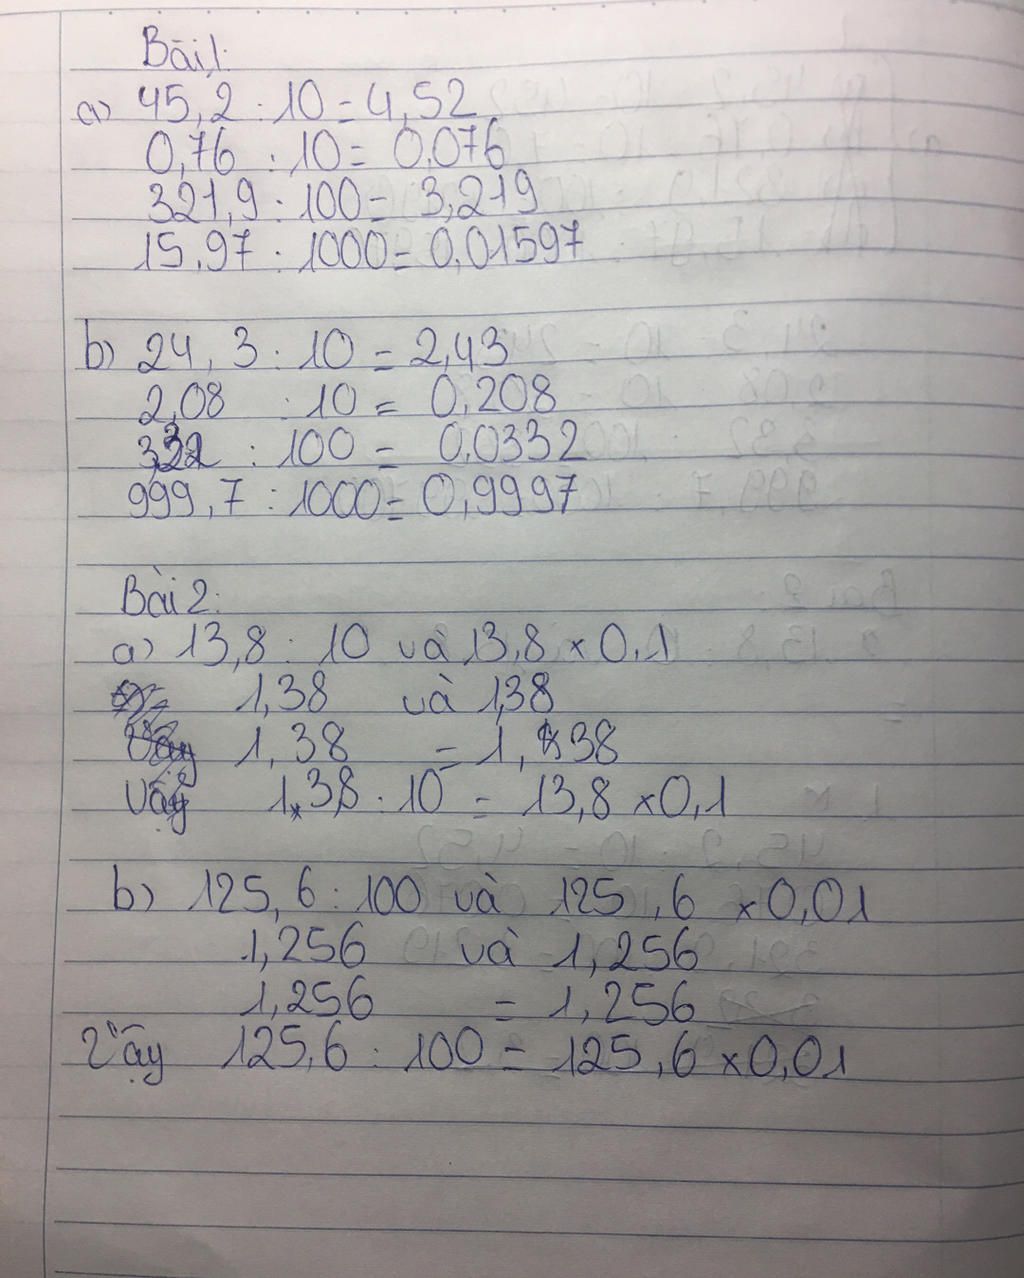 Bài 1:
a) 45,2 : 10 = 4,52
0,76 : 10 = 0,076
321,9 : 100 = 3,219
15,97 : 1000 = 0,01597
b) 24,3 : 10 = 2,43
2,08 : 10 = 0,208
3,32 : 100 = 0,0332
999,7 : 1000 = 0,9997
Bài 2:
a) 13,8 : 10 và 13,8 x 0,1
1,38 và 1,38
1,38 = 1,38
Vậy 1,3,8 : 10 = 13,8 x 0,1
b) 125,6 : 100 và 125,6 x 0,01
1,256 và 1,256
1,256 = 1,256
Vậy 125,6 : 100 = 125,6 x 0,01